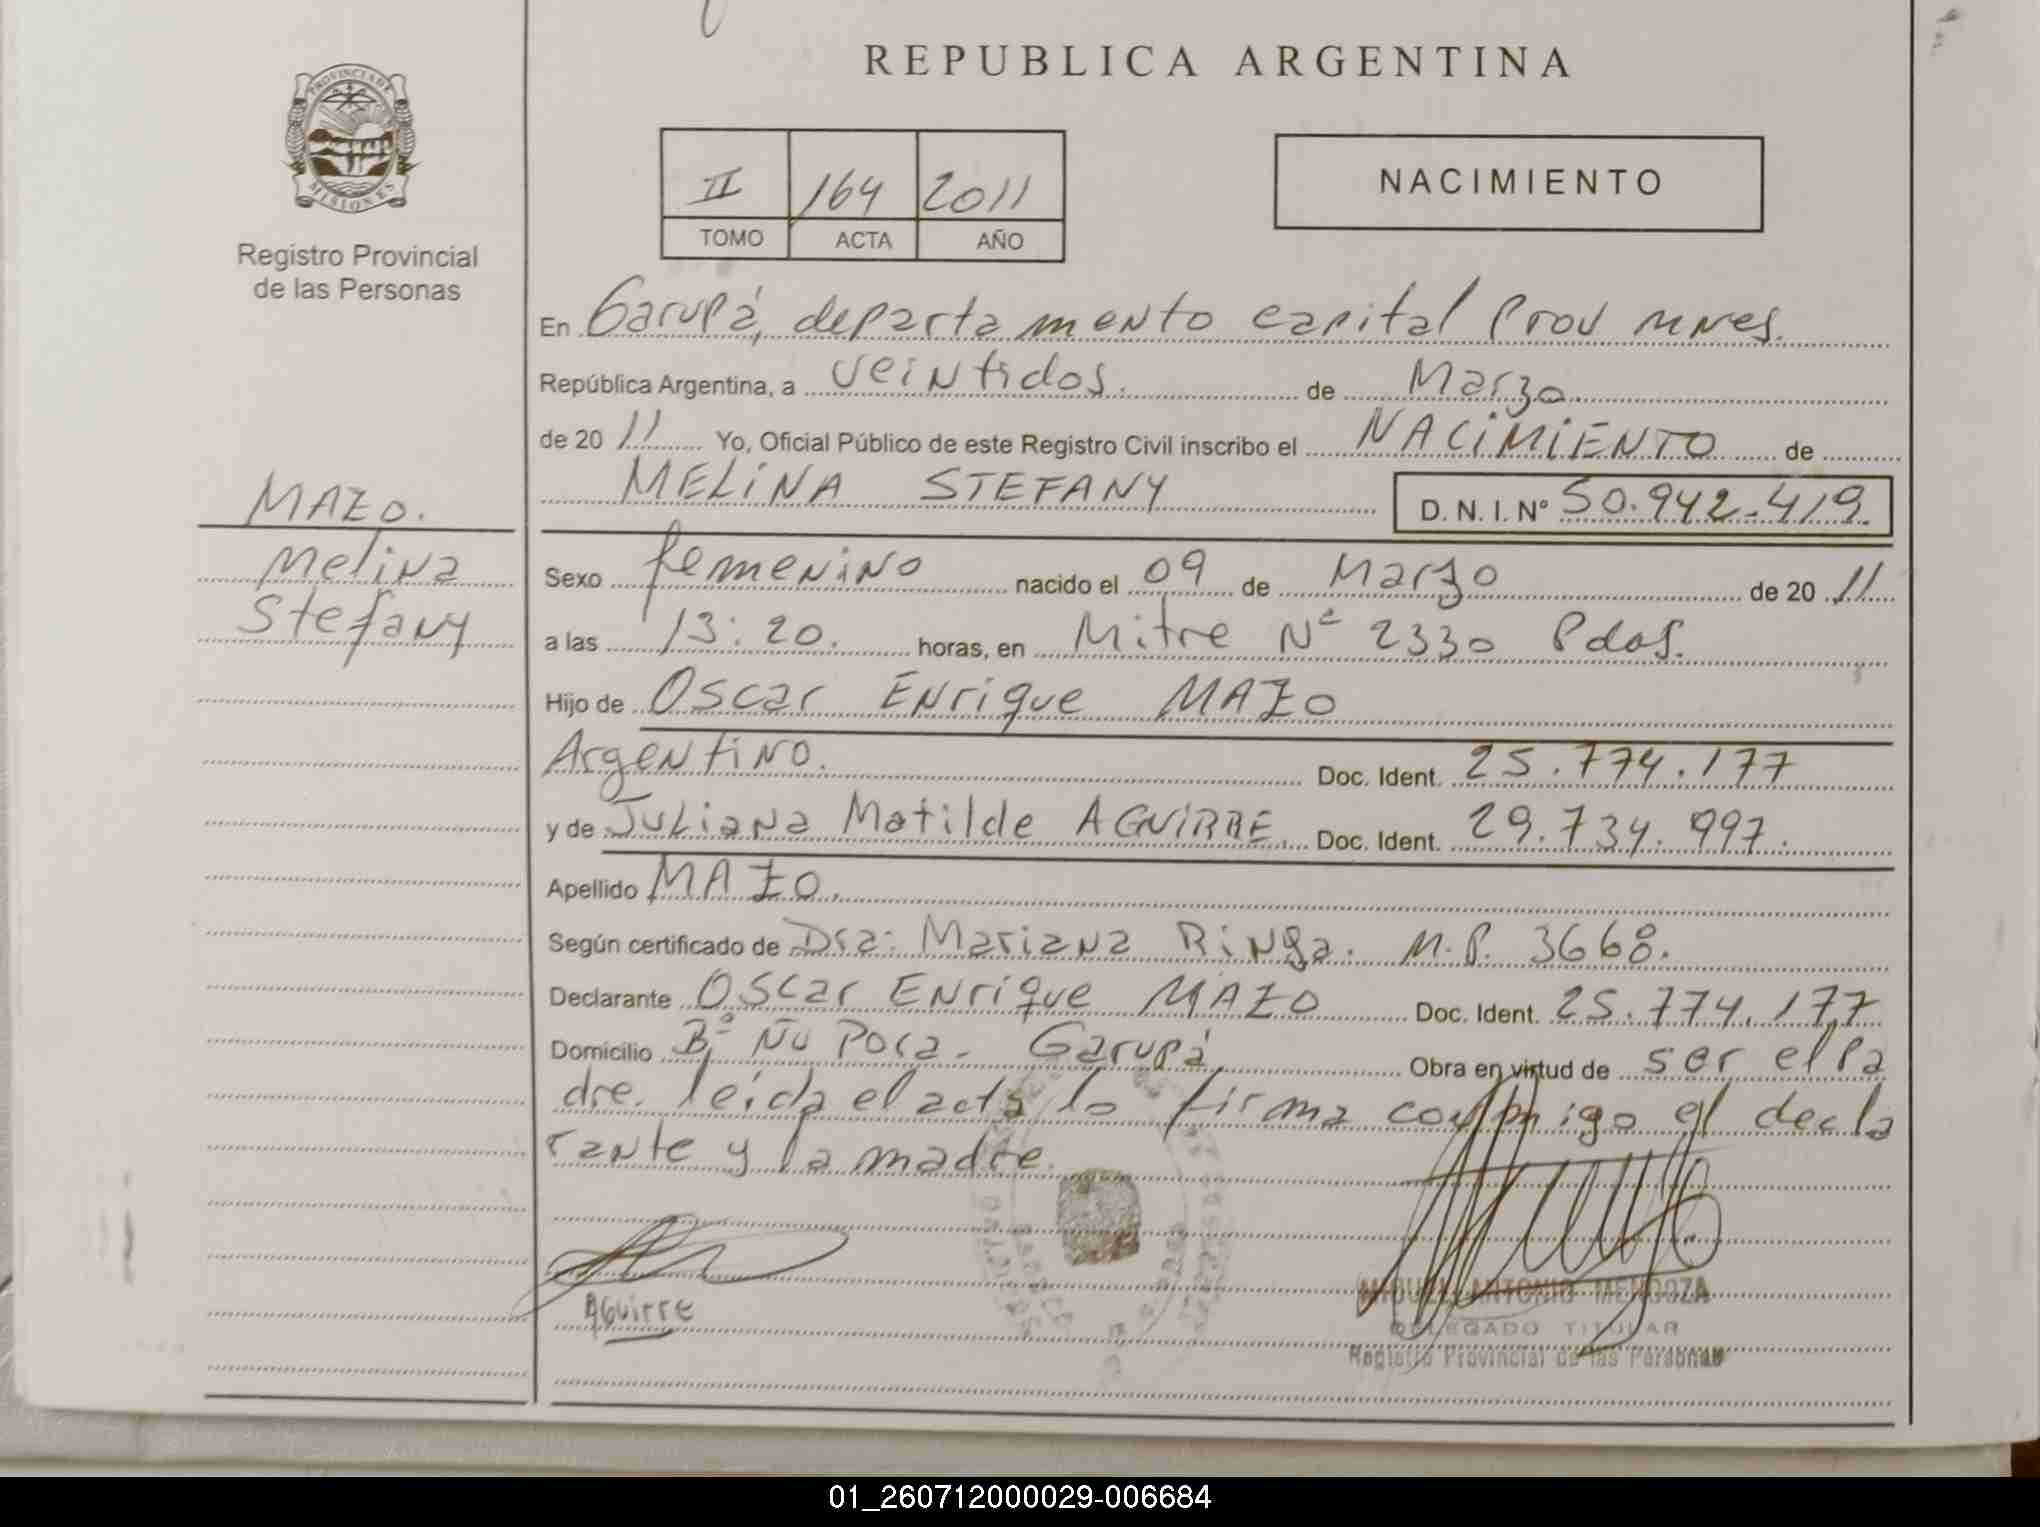 REPUBLICA ARGENTINA
PROVINCIA DE MISIONES
Registro Provincial
de las Personas
II 164 2011
TOMO ACTA AÑO
NACIMIENTO
En Garupá, departamento capital Prov mnes.
República Argentina, a veintidos. de Marzo.
de 20 11 Yo, Oficial Público de este Registro Civil inscribo el NACIMIENTO de
MELINA STEFANY D. N. I. Nº 50.942.419.
MAZO.
Melina
Stefany
Sexo femenino nacido el 09 de Marzo de 20 11
a las 13:20. horas, en Mitre Nº 2330 Pdas.
Hijo de Oscar Enrique MAZO
Argentino. Doc. Ident. 25.774.177
y de Juliana Matilde AGUIRRE. Doc. Ident. 29.734.997.
Apellido MAZO.
Según certificado de Dra: Mariana Ringa. M.P. 3668.
Declarante Oscar Enrique MAZO Doc. Ident. 25.774.177
Domicilio Bº Ñu Pora. Garupá Obra en virtud de ser el Pa
dre. leída el acta la firma conmigo el decla
rante y la madre.
Aguirre
MIGUEL ANTONIO MENDOZA
DELEGADO TITULAR
Registro Provincial de las Personas
01_260712000029-006684